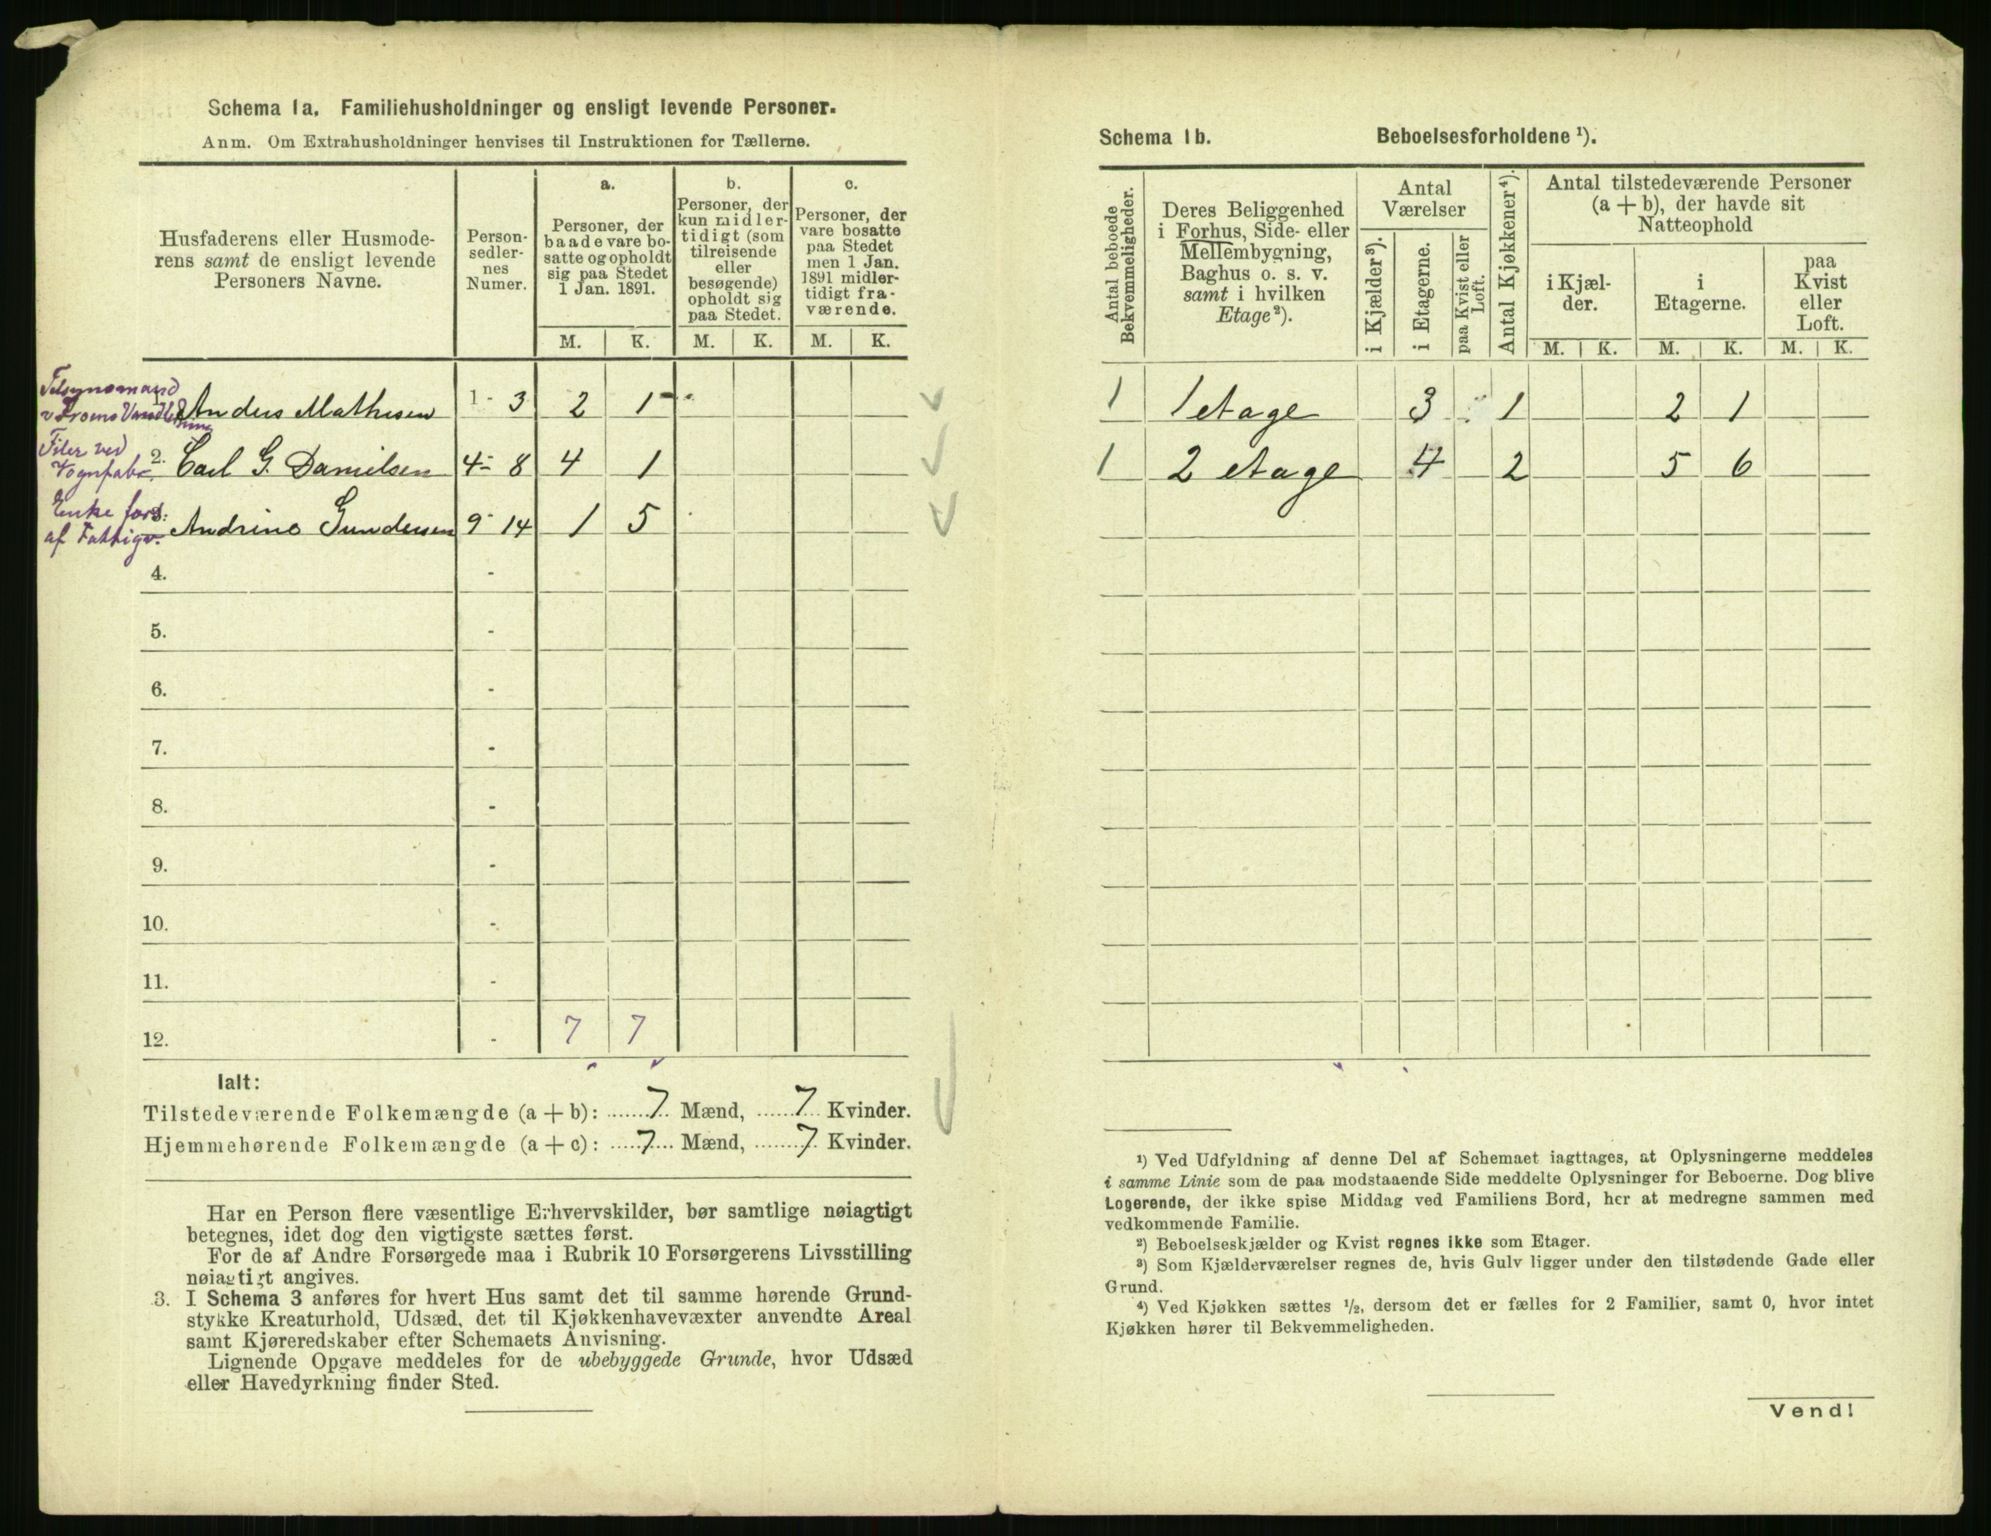 Schema 1a. Familiehusholdninger og ensligt levende Personer.
Anm. Om Extrahusholdninger henvises til Instruktionen for Tællerne.
Husfaderens eller Husmode-
rens samt de ensligt levende
Personers Navne.
Person-
sedler-
nes
Numer.
a.
Personer, der
baade vare bo-
satte og opholdt
sig paa Stedet
1 Jan. 1891.
b.
Personer, der
kun midler-
tidigt (som
tilreisende
eller
besøgende)
opholdt sig
paa Stedet.
c.
Personer, der
vare bosatte
paa Stedet
men 1 Jan.
1891 midler-
tidigt fra-
værende.
M. K. M. K. M. K.
Tilsynsmand
Anders Mathisen 1 - 3 2 1
Filer ved
Vognfabr.
2. Carl G. Danielsen 4 - 8 4 1
Enke fors.
af Fattigv.
Andrine Gundersen 9 - 14 1 5
4. -
5. -
6. -
7. -
8. -
9. -
10. -
11. -
12. - 7 7
Ialt:
Tilstedeværende Folkemængde (a + b): 7 Mænd, 7 Kvinder.
Hjemmehørende Folkemængde (a + c): 7 Mænd, 7 Kvinder.
Har en Person flere væsentlige Erhvervskilder, bør samtlige nøiagtigt
betegnes, idet dog den vigtigste sættes først.
For de af Andre Forsørgede maa i Rubrik 10 Forsørgerens Livsstilling
nøiagtigt angives.
3. I Schema 3 anføres for hvert Hus samt det til samme hørende Grund-
stykke Kreaturhold, Udsæd, det til Kjøkkenhavevæxter anvendte Areal
samt Kjøreredskaber efter Schemaets Anvisning.
Lignende Opgave meddeles for de ubebyggede Grunde, hvor Udsæd
eller Havedyrkning finder Sted.
Schema 1b. Beboelsesforholdene ¹).
Antal beboede
Bekvemmeligheder.
Deres Beliggenhed
i Forhus, Side- eller
Mellembygning,
Baghus o. s. v.
samt i hvilken
Etage²).
Antal
Værelser
i Kjælder³).
i Etagerne.
paa Kvist eller
Loft.
Antal Kjøkkener⁴).
Antal tilstedeværende Personer
(a + b), der havde sit
Natteophold
i Kjæl-
der.
i
Etagerne.
paa
Kvist
eller
Loft.
M. K. M. K. M. K.
1 1 etage 3 1 2 1
1 2 etage 4 2 5 6
¹) Ved Udfyldning af denne Del af Schemaet iagttages, at Oplysningerne meddeles
i samme Linie som de paa modstaaende Side meddelte Oplysninger for Beboerne. Dog blive
Logerende, der ikke spise Middag ved Familiens Bord, her at medregne sammen med
vedkommende Familie.
²) Beboelseskjælder og Kvist regnes ikke som Etager.
³) Som Kjælderværelser regnes de, hvis Gulv ligger under den tilstødende Gade eller
Grund.
⁴) Ved Kjøkken sættes ½, dersom det er fælles for 2 Familier, samt 0, hvor intet
Kjøkken hører til Bekvemmeligheden.
Vend!